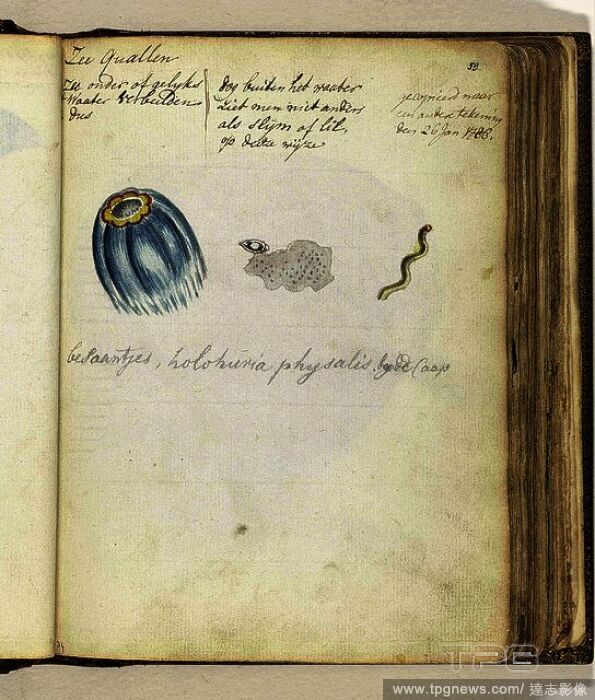 Zee Quallen
zee onder of gelyks
Waater Verbeelden
dus
dog buiten het waater
ziet men niet anders
als slijm of lil,
op deeze wijze
gecopieerd naar
een andre tekening
den 26 Jan
besaantjes, holohuria physalis. by de Caap
TPG
www.tpgnews.com/ 達志影像